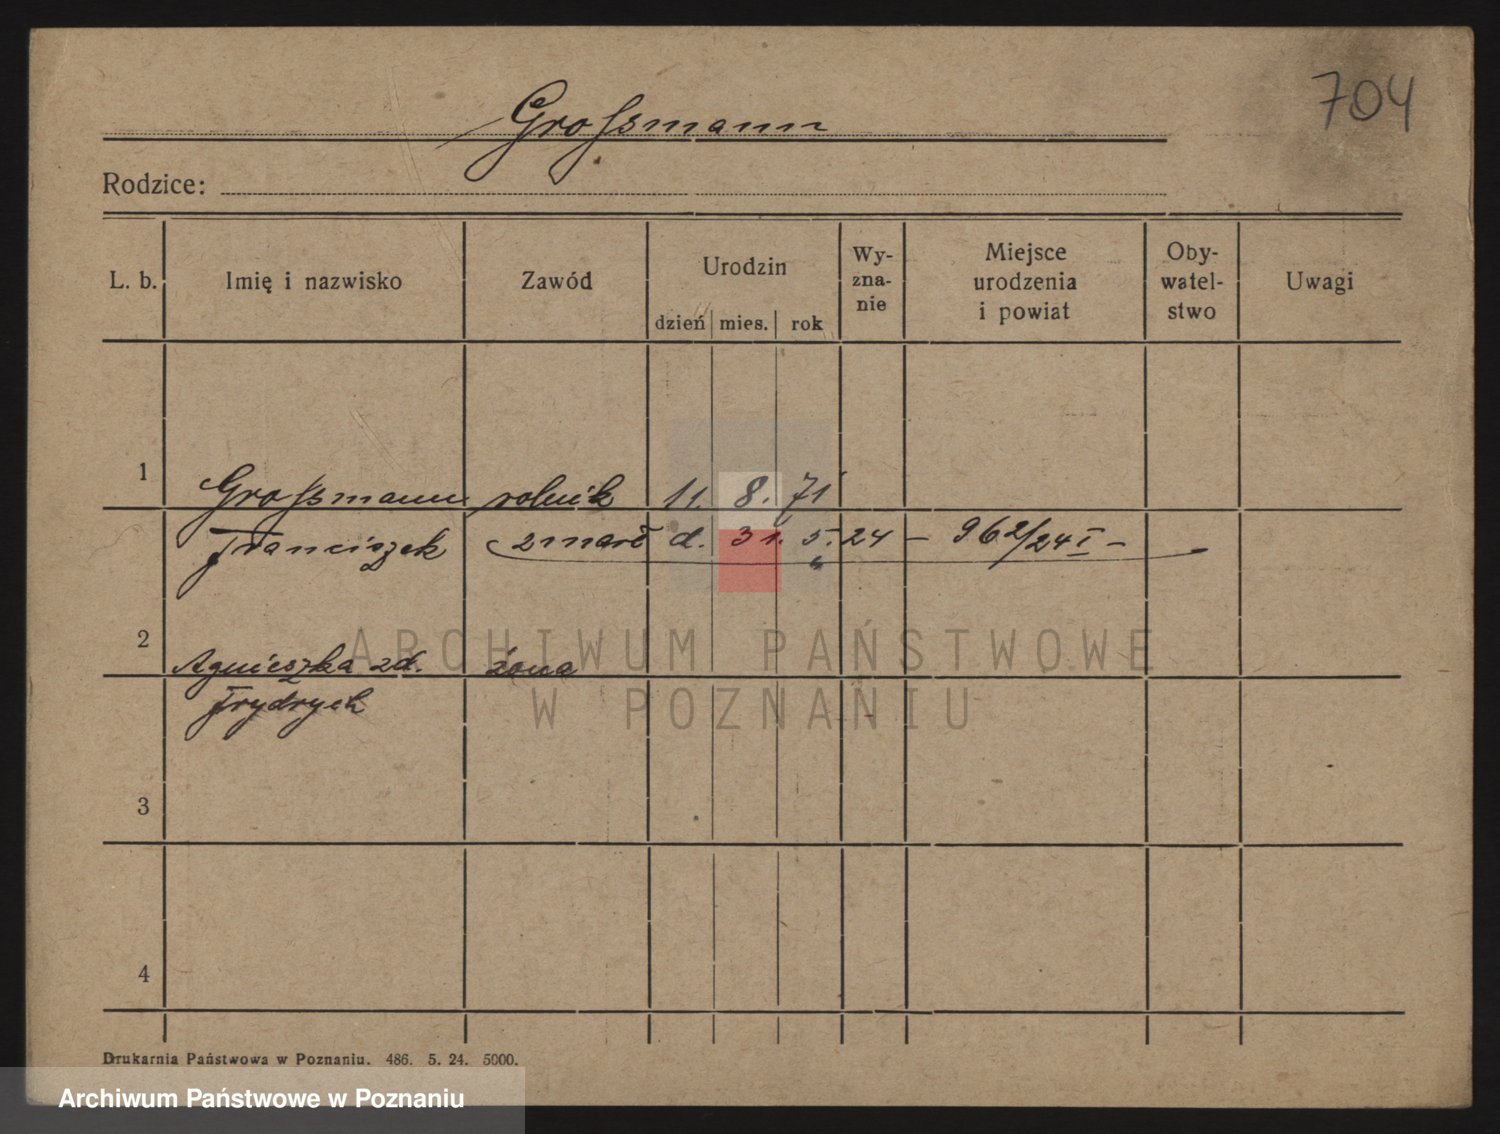 704
Grossmann
Rodzice:
L. b. Imię i nazwisko Zawód Urodzin dzień mies. rok Wy-zna-nie Miejsce urodzenia i powiat Oby-watel-stwo Uwagi
1 Grossmann rolnik 11. 8. 71
Franciszek zmarł d. 31. 5. 24 - 962/24 I -
2 Agnieszka zd. żona
Frydrych
3
4
Drukarnia Państwowa w Poznaniu. 486. 5. 24. 5000.
ARCHIWUM PAŃSTWOWE
W POZNANIU
Archiwum Państwowe w Poznaniu